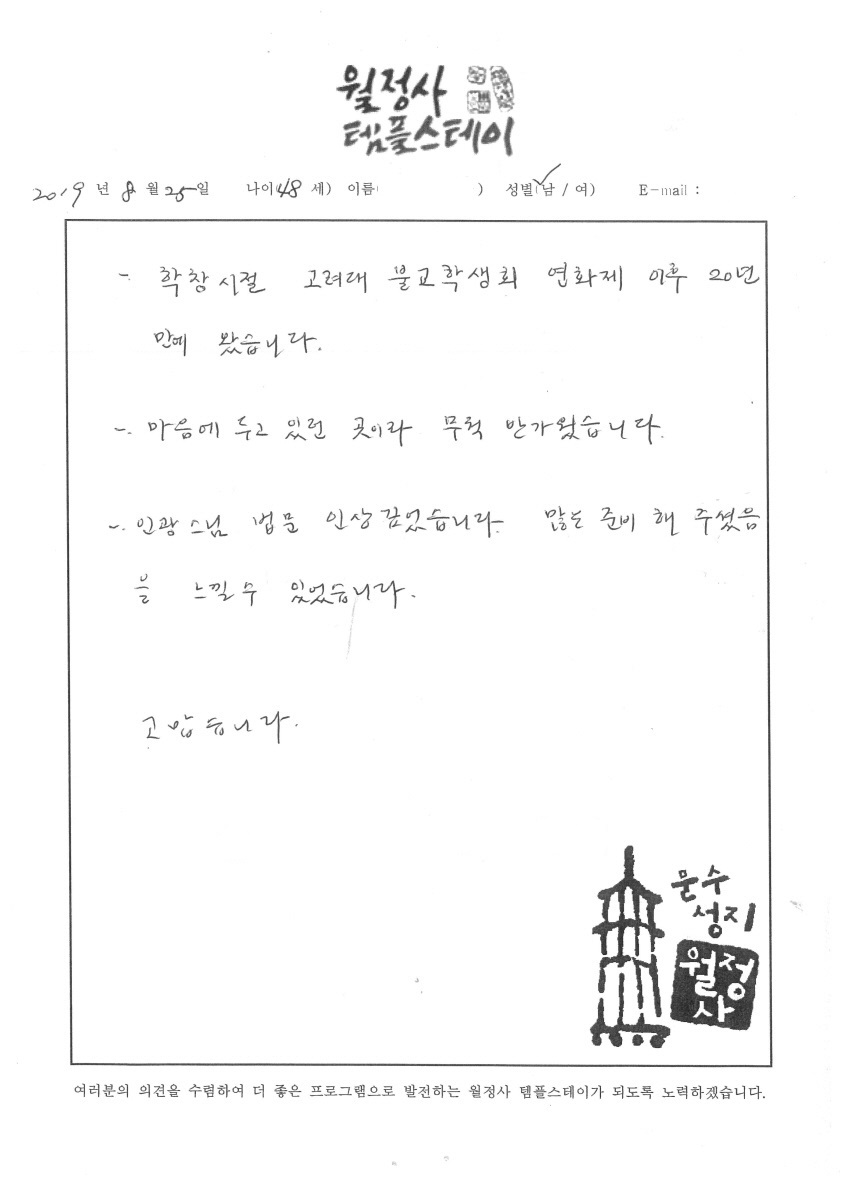 월정사
템플스테이
2019 년 8 월 25 일 나이 48 세) 이름( ) 성별(남 / 여) E-mail :
- 학창시절 고려대 불교학생회 연화제 이후 20년
만에 왔습니다.
- 마음에 두고 있던 곳이라 무척 반가웠습니다.
- 인광스님 법문 인상깊었습니다. 많은 준비 해 주셨음
을 느낄 수 있었습니다.
고맙습니다.
문수
성지
월정
사
여러분의 의견을 수렴하여 더 좋은 프로그램으로 발전하는 월정사 템플스테이가 되도록 노력하겠습니다.